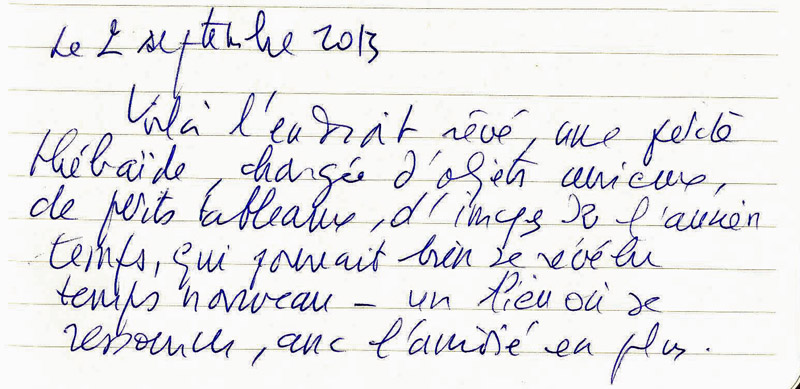 Le 2 septembre 2013
Voilà l'endroit rêvé, une petite
thébaïde, chargée d'objets curieux,
de petits tableaux, d'images de l'ancien
temps, qui pourrait bien se révéler
temps nouveau – un lieu où se
ressourcer, avec l'amitié en plus.